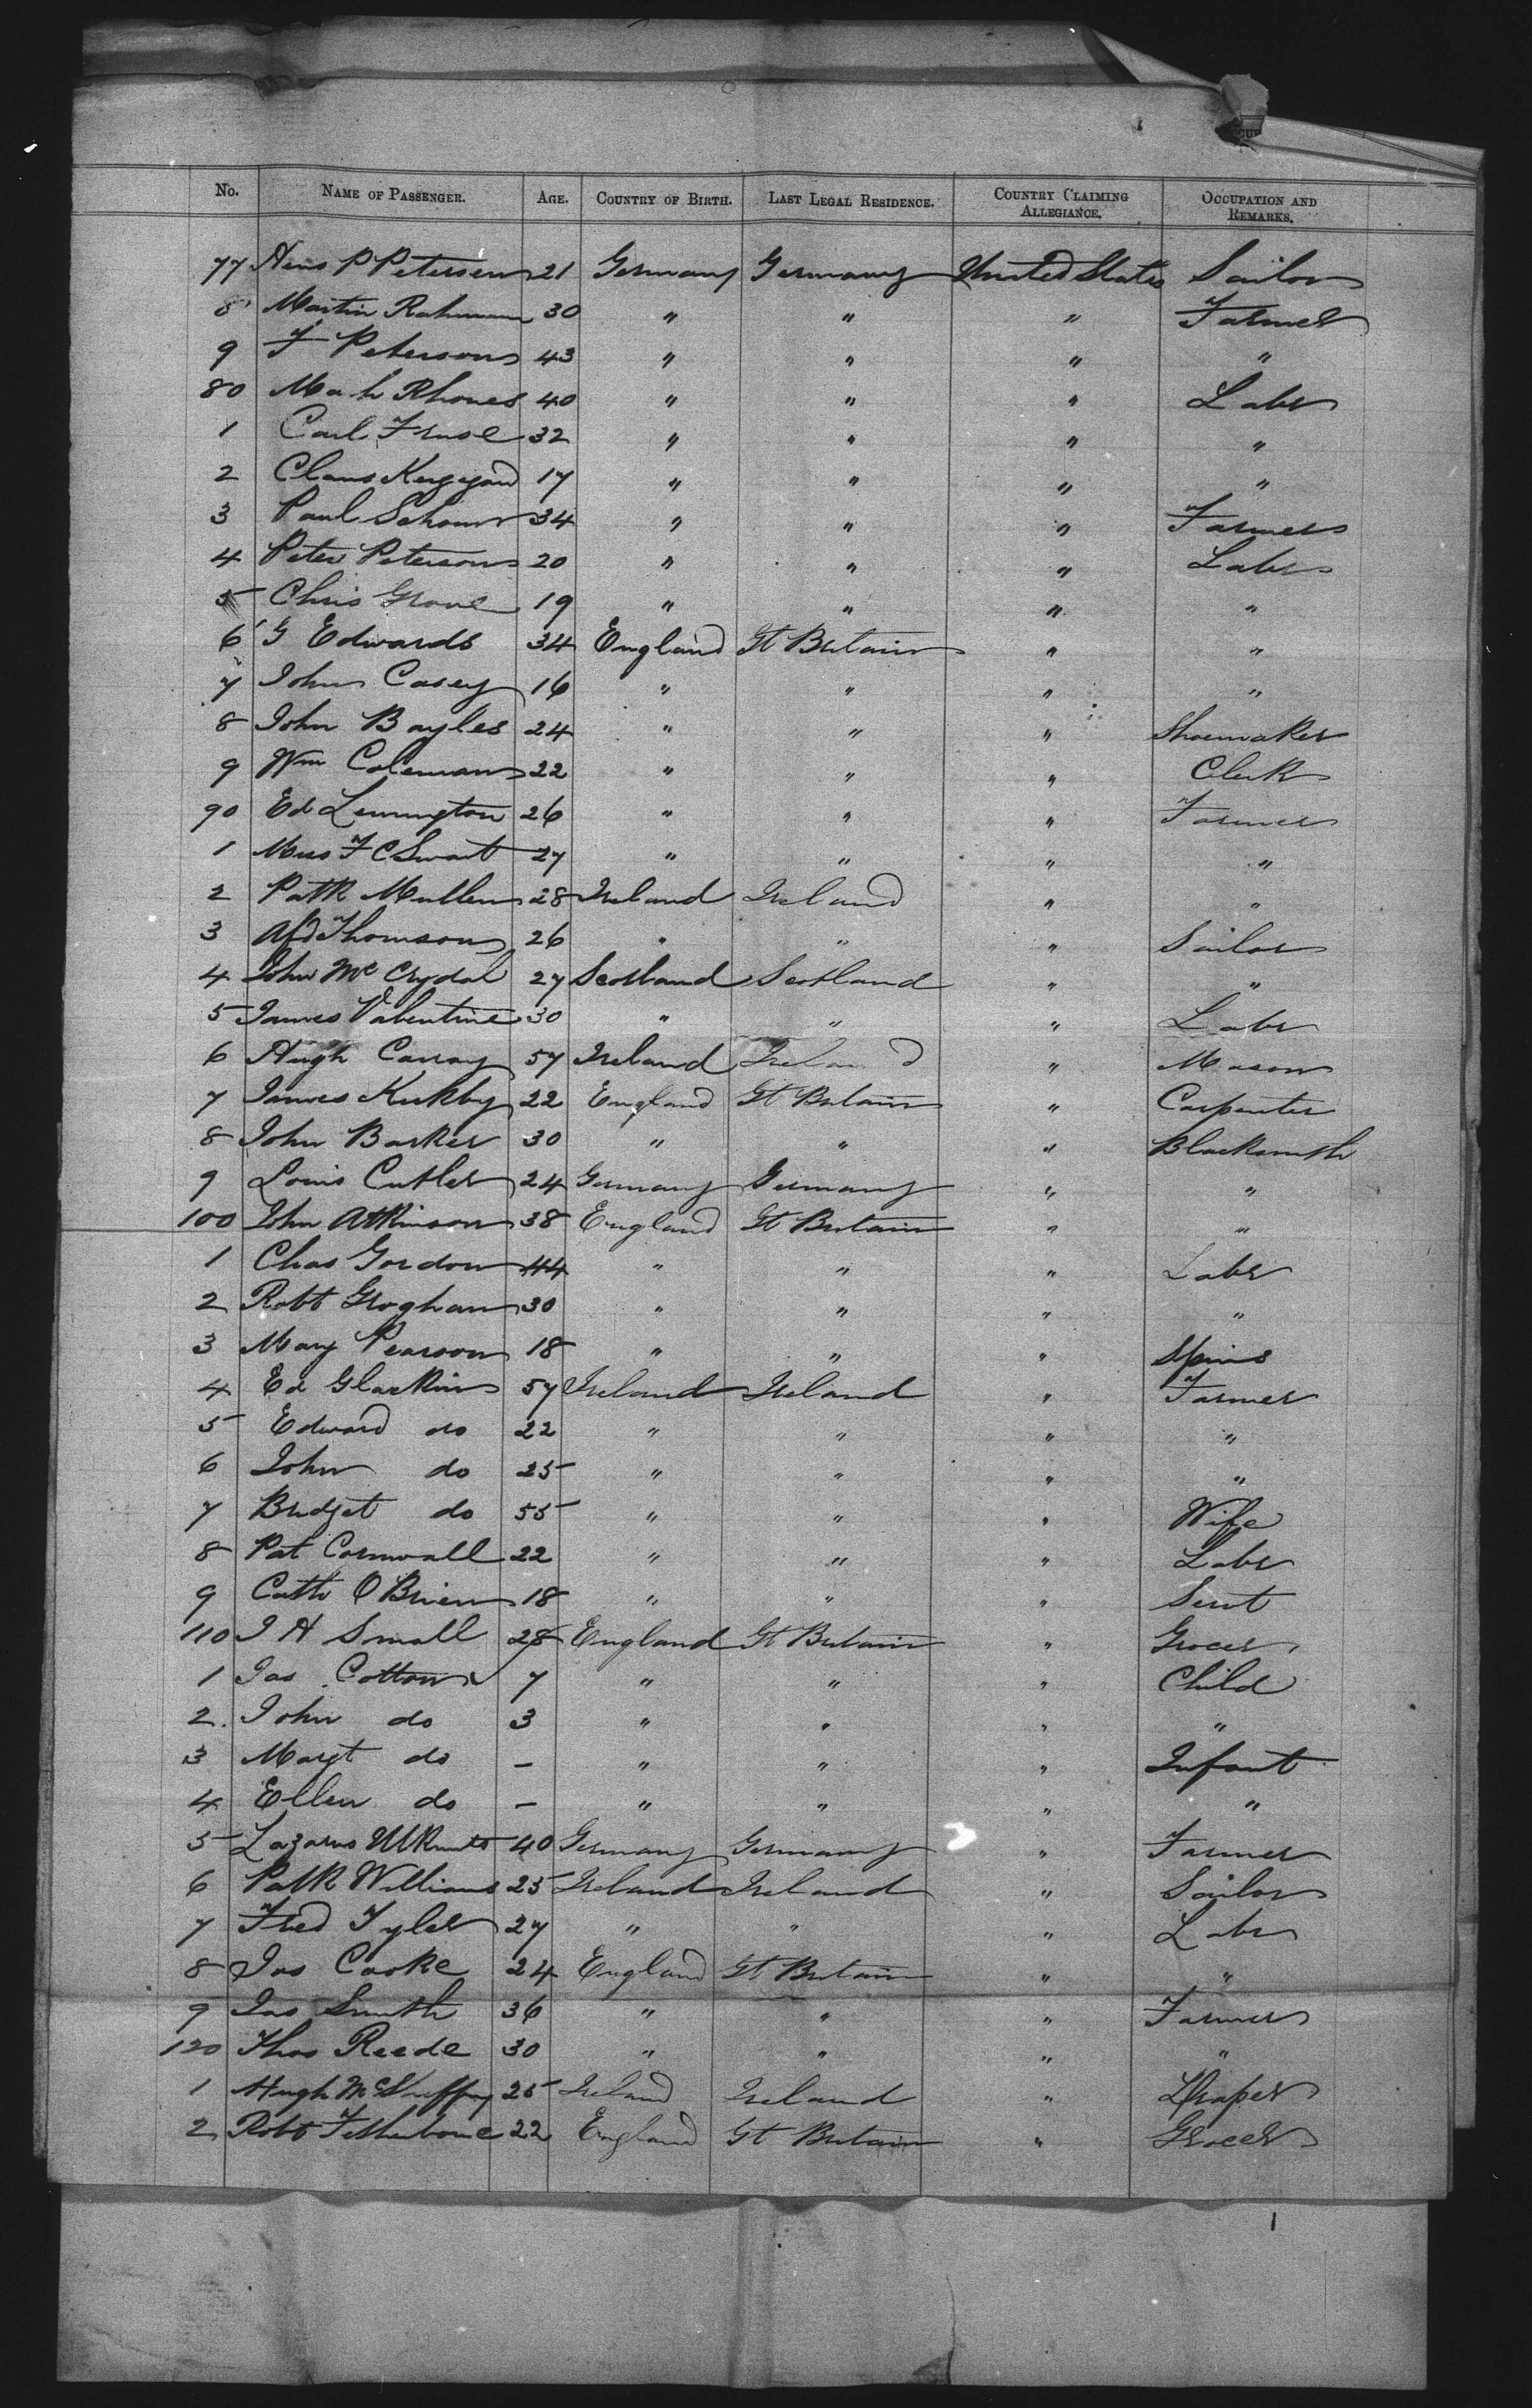 No. NAME OF PASSENGER. AGE. COUNTRY OF BIRTH. LAST LEGAL RESIDENCE. COUNTRY CLAIMING ALLEGIANCE. OCCUPATION AND REMARKS.
77 Hens P Petersen 21 Germany Germany United States Sailor
8 Martin Rahmann 30 " " " Farmer
9 F Peterson 43 " " " "
80 Mah Rhones 40 " " " Labr
1 Carl Fruse 32 " " " "
2 Claus 17 " " " "
3 Paul 34 " " " Farmer
4 Peter Peterson 20 " " " Labr
5 Chris Grove 19 " " " "
6 G Edwards 34 England Gt Britain " "
7 John Casey 16 " " " "
8 John Bayles 24 " " " Shoemaker
9 Wm Coleman 22 " " " Clerk
90 Ed Lennington 26 " " " Farmer
1 F C Swart 27 " " " "
2 Patk Mullen 28 Ireland Ireland " "
3 Alfd Thomson 26 " " " Sailor
4 John Mc Crydal 27 Scotland Scotland " "
5 James Valentine 30 " " " Labr
6 Hugh Carray 57 Ireland Ireland " Mason
7 James Kirkby 22 England Gt Britain " Carpenter
8 John Barker 30 " " " Blacksmith
9 Louis Cutler 24 Germany Germany " "
100 John Atkinson 38 England Gt Britain " "
1 Chas Gordon 44 " " " Labr
2 Robt Groghan 30 " " " "
3 Mary Pearson 18 " " " Spins
4 Ed Glackin 57 Ireland Ireland " Farmer
5 Edward do 22 " " " "
6 John do 25 " " " "
7 Bridget do 55 " " " Wife
8 Pat Cornwall 22 " " " Labr
9 Cath O Brien 18 " " " Servt
110 J H Small 28 England Gt Britain " Grocer
1 Jas Cotton 7 " " " Child
2 John do 3 " " " "
3 Margt do - " " " Infant
4 Ellen do - " " " "
5 Lazarus 40 Germany Germany " Farmer
6 Patk Williams 25 Ireland Ireland " Sailor
7 Fred Tyler 27 " " " Labr
8 Jas Cooke 24 England Gt Britain " "
9 Jas Smith 36 " " " Farmer
120 Thos Reede 30 " " " "
1 Hugh McGuffoy 25 Ireland Ireland " Draper
2 Robt Fetherbone 22 England Gt Britain " Grocer